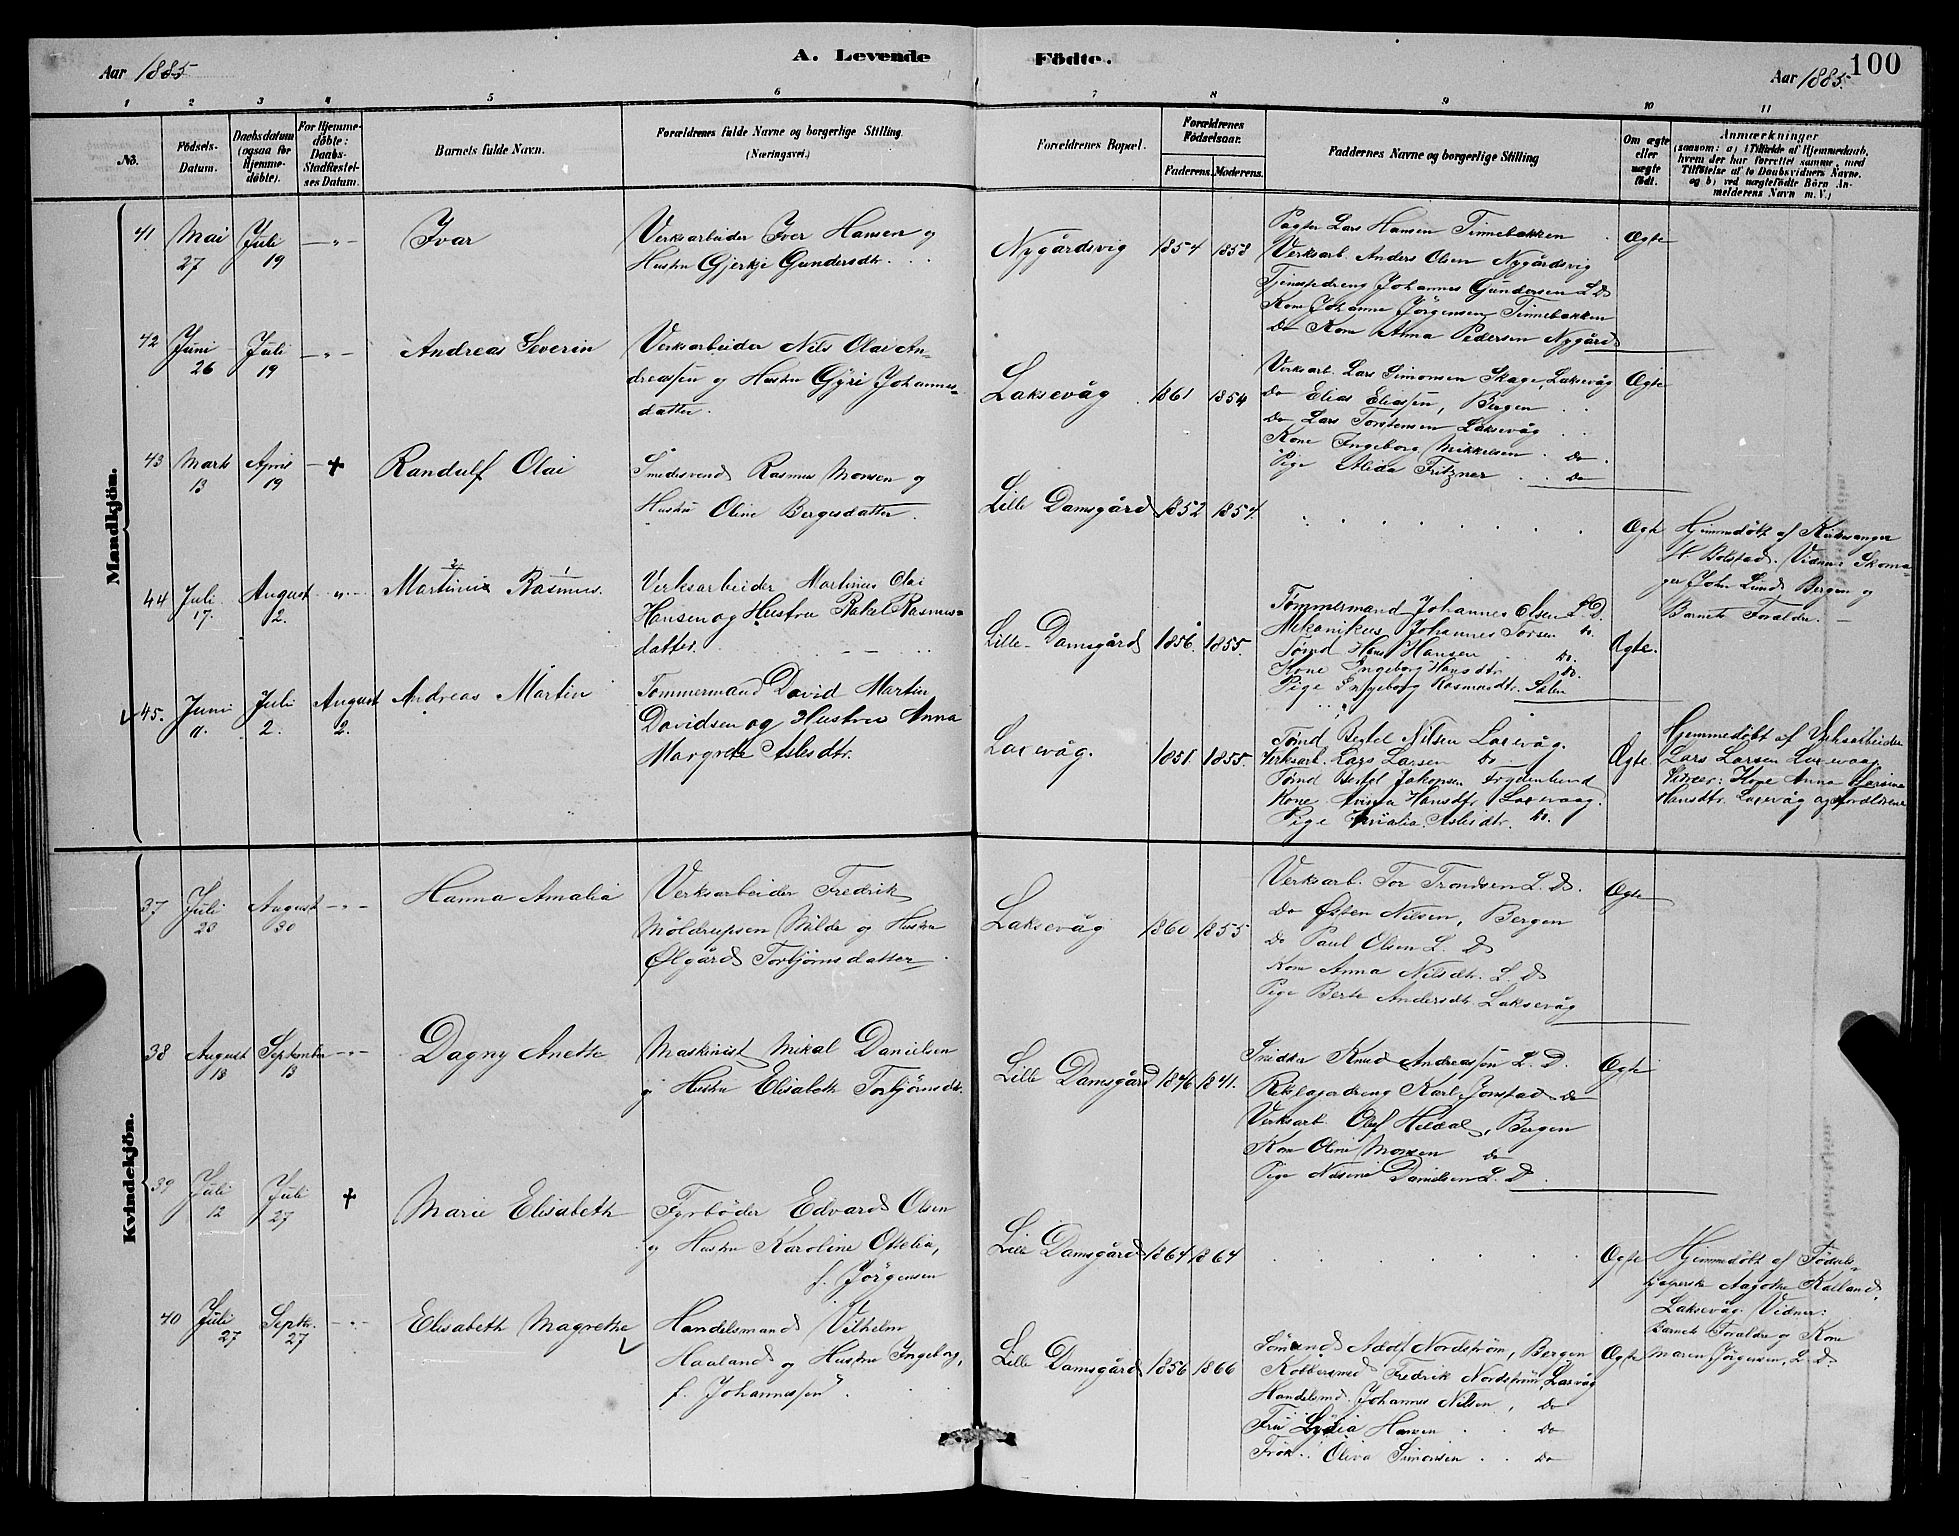 Aar 1885
A. Levende
Födte.
Aar 1885.
100
1 2 3 4 5 6 7 8 9 10 11
No.
Födsels-Datum.
Daabsdatum (ogsaa for Hjemme-döbte).
For Hjemme-döbte: Daabs-Stadfæstel-ses Datum.
Barnets fulde Navn.
Forældrenes fulde Navne og borgerlige Stilling. (Næringsvei.)
Forældrenes Bopæl.
Forældrenes Födselsaar.
Faderens. Moderens.
Faddernes Navne og borgerlige Stilling
Om ægte eller uægte födt.
Anmærkninger
(saasom: a) i Tilfælde af Hjemmedaab,
hvem der har forrettet samme, med
Tilföielse af to Daabsvidners Navne,
og b) ved uægtefödte Börn An-
melderens Navn m.V.)
Mandkjön.
41 Mai 27 Juli 19 - " - Ivar
Verksarbeider Iver Hansen og
Hustru Gjerke Gundersdtr.
Nygårdsvig 1854 1858
Pagter Lars Hansen Tinnebakken
Verksarb. Anders Olsen Nygårdsvig
Tjenestedreng Johannes Gundersen L D
Kone Johanne Jörgensen Tinnebakken
Do Kone Anna Pedersen Nygård
Ægte
42 Juni 26 Juli 19 - " - Andreas Severin
Verksarbeider Nils Olai An-
dreassen og Hustru Gyri Johannes-
datter.
Laksevåg 1861 1854
Verksarb. Lars Simonsen Skage, Laksevåg
Do Elias Eliassen, Bergen
Do Lars Torstensen Laksevåg
Kone Ingeborg Mikkelsen Do
Pige Alida Fritzner Do
Ægte
43 Marts 13 April 19 - + Randulf Olai
Smedesvend Rasmus Monsen og
Hustru Oline Bergesdatter.
Lille Damsgård 1852 1854.
Ægte
Hjemmedöbt af Kirkesanger
H. Bolstad. Vidner: Skoma-
ger John Lund Bergen og
Barnets Forældre.
44 Juli 17. August 2. - " - Martinus Rasmus.
Verksarbeider Martinus Olai
Hansen og Hustru Rakel Rasmus-
datter.
Lille-Damsgård 1856. 1855.
Tömmermand Johannes Olsen L.D.
Mekanikus Johannes Torsen Do.
Tömd Hans Hansen Do.
Kone Ingeborg Hansdtr. Do.
Pige Ingeborg Rasmusdtr. Salen
Ægte.
45. Juni 11. Juli 2. August 2. Andreas Martin
Tömmermand David Martin
Davidsen og Hustru Anna
Margrete Aslesdtr.
Laxevåg. 1851. 1855.
Tömd Bertel Nilsen Laxevåg.
Verksarb. Lars Larsen Do
Tömd Bertel Jakopsen Frydenlund
Kone Hansdtr. Laxevaag.
Pige Amalia Aslesdtr. Do.
Ægte
Hjemmedöbt af Verksarbeider
Lars Larsen Laxevaag
Vidner: Kone Anna
Hansdtr. Laxevåg og Forældrene
Kvindekjön.
37 Juli 23 August 30 - " - Hanna Amalia
Verksarbeider Fredrik
Möldrupsen Milde og Hustru
Ølgård Torbjörnsdatter
Laksevåg 1860 1855
Verksarb. Tor Trondsen L. D.
Do Østen Nilsen, Bergen
Do Paul Olsen L. D
Kone Anna Nilsdtr. L. D
Pige Berte Andersdtr. Laksevåg
Ægte
38 August 13 September 13 - " - Dagny Anette
Maskinist Mikal Danielsen
og Hustru Elisabeth Torbjörnsdtr.
Lille Damsgård 1846 1841.
Snidker Knud Andreassen L. D.
Karl Jonstad Do
Verksarb. Oluf Heldal, Bergen
Kone Oline Monsen Do
Pige Nilsine Danielsen L. D.
Ægte
39 Juli 12 Juli 27 + Marie Elisabeth
Fyrböder Edvard Olsen
og Hustru Karoline Ottelia,
f. Jörgensen
Lille Damsgård 1864 1864
Ægte
Hjemmedöbt af Födsels-
hjælperske Aagothe Kaland,
Laksevåg. Vidner:
Barnets Forældre og Kone
Maren Jörgensen, L. D.
40 Juli 27 Septbr. 27 - " - Elisabeth Magrethe
Handelsmand Vilhelm
Haaland og Hustru Ingeborg,
f. Johannessen.
Lille Damsgård 1856 1866
Sömand Adolf Nordström, Bergen
Kobbersmed Fredrik Nordström, Laxvåg
Handelsmd. Johannes Nilsen, Do
Fru Lydia Hansen Do
Frök. Oliva Simonsen Do
Ægte